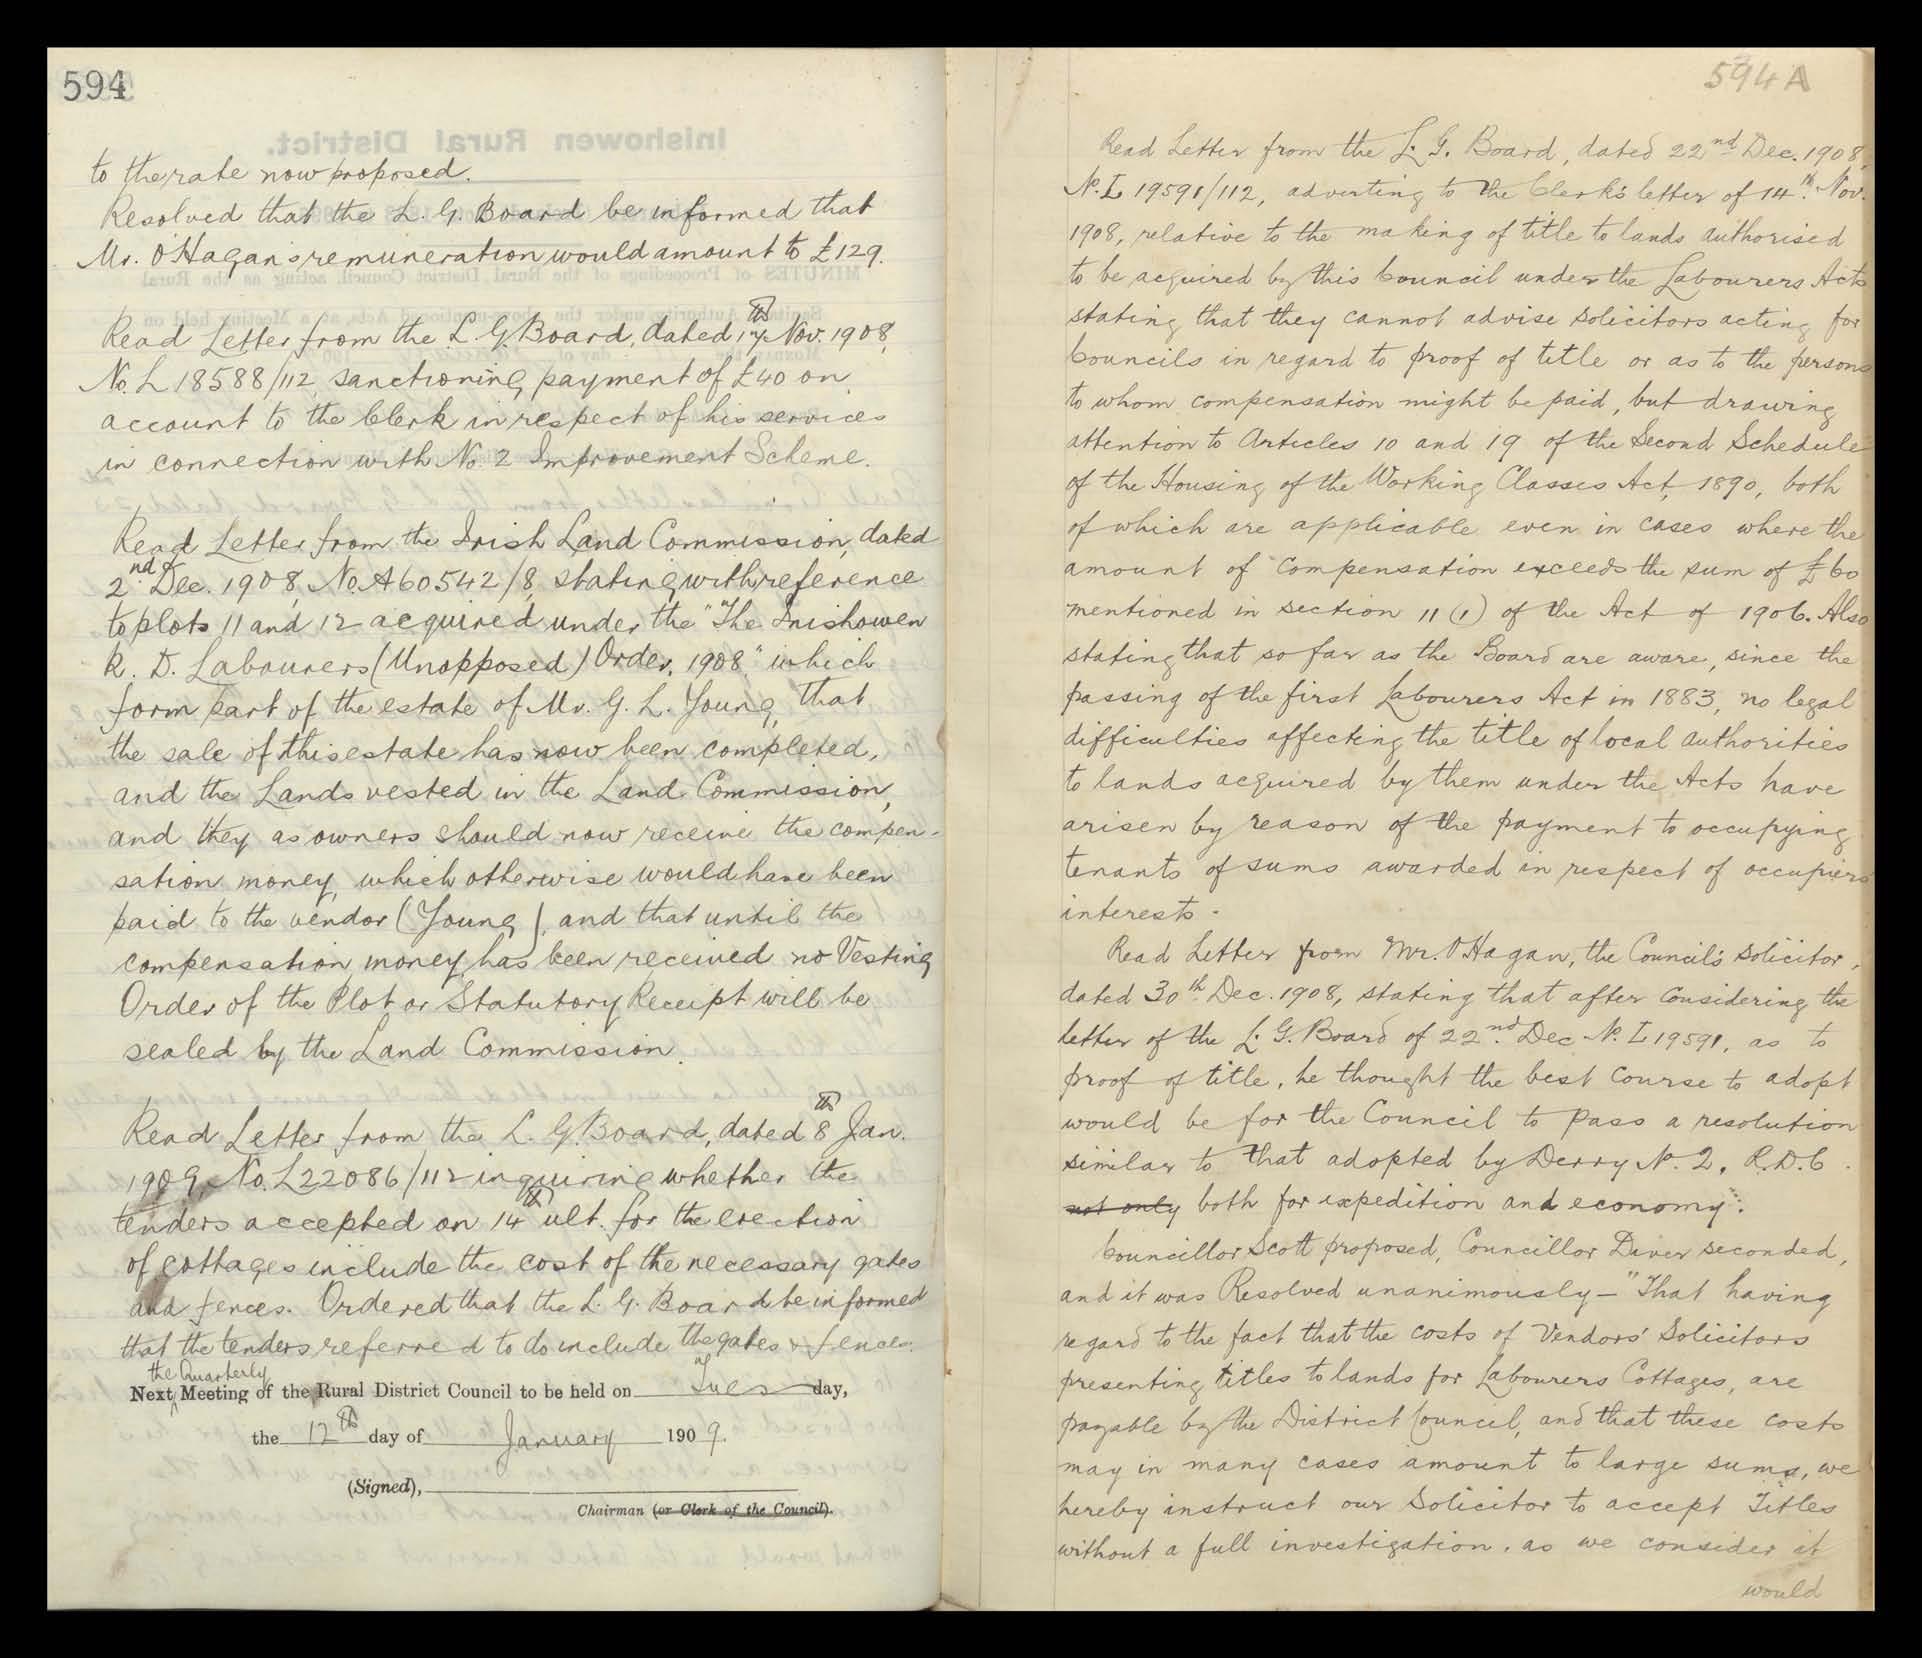 594
to the rate now proposed.
Resolved that the L. G. Board be informed that
Mr. O'Hagan's remuneration would amount to £129.
Read Letter from the L. G. Board, dated 17th Nov. 1908,
No. L 18588/112, sanctioning payment of £40 on
account to the Clerk in respect of his services
in connection with No. 2 Improvement Scheme.
Read Letter from the Irish Land Commission, dated
2nd Dec. 1908, No. A60542/8, stating with reference
to plots 11 and 12 acquired under the "The Inishowen
R. D. Labourers (Unopposed) Order, 1908" which
form part of the estate of Mr. G. L. Young, that
the sale of this estate has now been completed,
and the Lands vested in the Land Commission,
and they as owners should now receive the compen-
sation money, which otherwise would have been
paid to the vendor (Young), and that until the
compensation money has been received no Vesting
Order of the Plot or Statutory Receipt will be
sealed by the Land Commission.
Read Letter from the L. G. Board, dated 8th Jan.
1909, No. L22086/112 inquiring whether the
tenders accepted on 14th ult. for the erection
of cottages include the cost of the necessary gates
and fences. Ordered that the L. G. Board be informed
that the tenders referred to do include the gates & fences.
the Quarterly
Next Meeting of the Rural District Council to be held on Tuesday,
the 12th day of January 1909.
(Signed),
Chairman (or Clerk of the Council).
594A
Read Letter from the L. G. Board, dated 22nd Dec. 1908,
No. L 19591/112, adverting to the Clerk's letter of 14th Nov.
1908, relative to the making of title to lands authorised
to be acquired by this Council under the Labourers Acts
stating that they cannot advise Solicitors acting for
Councils in regard to proof of title or as to the persons
to whom compensation might be paid, but drawing
attention to Articles 10 and 19 of the Second Schedule
of the Housing of the Working Classes Act, 1890, both
of which are applicable even in cases where the
amount of compensation exceeds the sum of £60
mentioned in section 11 (1) of the Act of 1906. Also
stating that so far as the Board are aware, since the
passing of the first Labourers Act in 1883, no legal
difficulties affecting the title of local authorities
to lands acquired by them under the Acts have
arisen by reason of the payment to occupying
tenants of sums awarded in respect of occupiers
interests.
Read Letter from Mr. O'Hagan, the Council's Solicitor,
dated 30th Dec. 1908, stating that after considering the
letter of the L. G. Board of 22nd Dec No. L 19591, as to
proof of title, he thought the best course to adopt
would be for the Council to pass a resolution
similar to that adopted by Derry No. 2, R.D.C.
not only both for expedition and economy.
Councillor Scott proposed, Councillor Diver seconded,
and it was Resolved unanimously — "That having
regard to the fact that the costs of Vendors' Solicitors
presenting titles to lands for Labourers Cottages, are
payable by the District Council, and that these costs
may in many cases amount to large sums, we
hereby instruct our Solicitor to accept Titles
without a full investigation, as we consider it
would